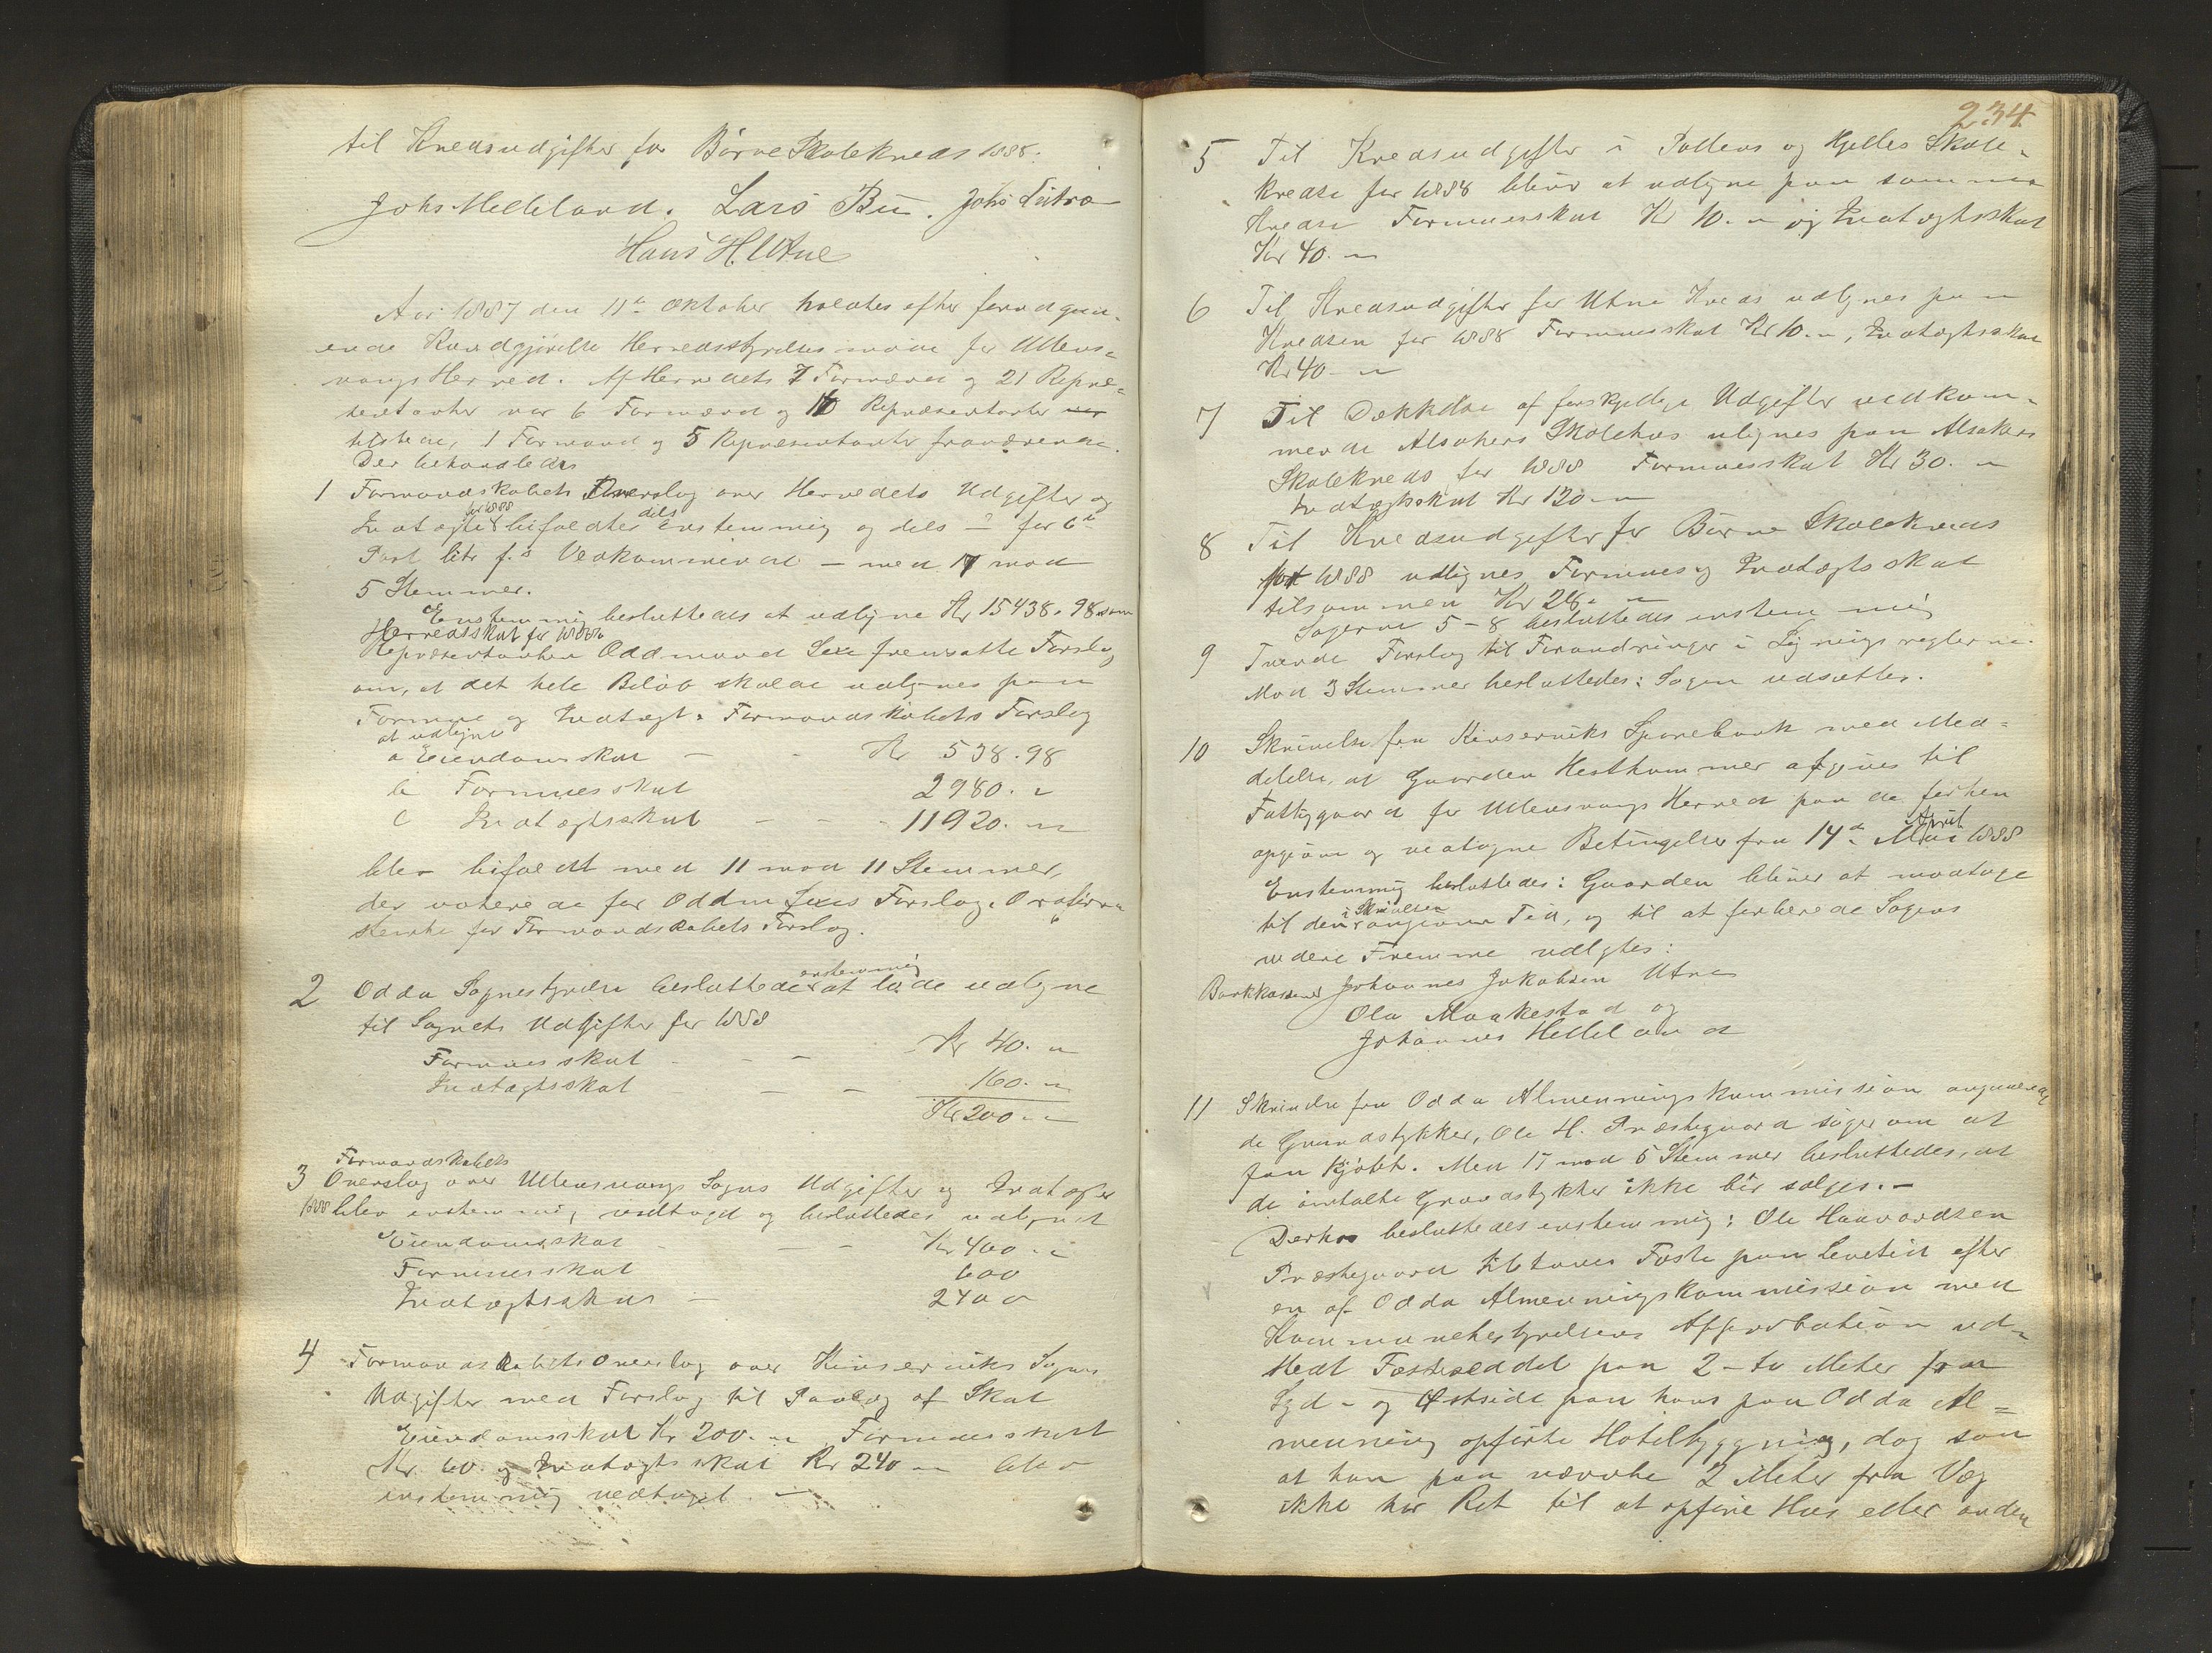 til Kredsudgifter for Børve Skolekreds 1888.
Johs Helleland. Lars Bu. Johs
Hans H. Utne
Aar 1887 den 11te Oktober holdtes efter forudgaa-
ende Kundgjørelse Herredsstyrelsesmøde for Ullens-
vangs Herred. Af Herredets 7 Formænd og 21 Repræ-
sentanter var 6 Formænd og 16 Repræsentanter
tilstede, 1 Formand og 5 Repræsentanter fraværende.
Der behandledes
1 Formandskabets Overslag over Herredets Udgifter og
for 1888 dels
Indtægter bifaldtes enstemmig og dels – for 6te
Post litr f.s Vedkommende – med 17 mod
5 Stemmer.
Enstemmig besluttedes at udligne Kr 15438.98 som
Herredsskat for 1888
Repræsentanten Oddmund Sexe fremsatte Forslag
om, at det hele Beløb skulde udlignes paa
Formue og Indtægt. Formandskabets Forslag
at udligne
a Eiendomsskat – - Kr 538.98
b Formuesskat 2980. "
c Indtægtsskat - - - 11920. "
blev bifaldt med 11 mod 11 Stemmer,
der voterede for Oddm Sexes Forslag. Ordføreren
stemte for Formandskabets Forslag.
enstemmig
2 Odda Sognestyrelse besluttede at lade udligne
til Sognets Udgifter for 1888
Formuesskat - - - Kr 40. "
Indtægtsskat - - 160. "
Kr 200. "
Formandskabets
3 Overslag over Ullensvangs Sogns Udgifter og Indtægter
1888 blev enstemmig vedtaget og besluttedes udlignet
Eiendomsskat - - - Kr 400. "
Formuesskat 600
Indtægtsskat - 2400
4 Formandskabets Overslag over Kinserviks Sogns
Udgifter med Forslag til Paalæg af Skat
Eiendomsskat Kr 200. " Formuesskat
Kr. 60. og Indtægtsskat Kr 240 " blev
enstemmig vedtaget. –
234
5 Til Kredsudgifter i og Hjelles Skole-
kredse for 1888 bliver at udligne paa samme
Kredse Formuesskat Kr 10. " og Indtægtsskat
Kr 40. "
6 Til Kredsudgifter for Utne Kreds udlignes paa
Kredsen for 1888 Formuesskat Kr 10. ", Indtægtsskat
Kr 40 - "
7 Til Dækkelse af forskjellige Udgifter vedkom-
mende Alsakers Skolehus ulignes paa Alsakers
Skolekreds for 1888 Formuesskat Kr 30. "
Indtægtsskat Kr 120 - "
8 Til Kredsudgifter for Børve Skolekreds
for 1888 udlignes Formues og Indtægtsskat
tilsammen Kr 28. "
Sagerne 5 – 8 besluttedes enstemmig
9 Tvende Forslag til Forandringer i Ligningsreglerne.
Mod 3 Stemmer besluttedes: Sagen udsættes.
10 Skrivelse fra Kinserviks Sparebank med Med-
delelse, at Gaarden Hesthammer afgives til
Fattiggaard for Ullensvangs Herred paa de forhen
April
opgivne og vedtagne Betingelser fra 14de Mai 1888
Enstemmig besluttedes: Gaarden bliver at modtage
i Skrivelsen
til den angivne Tid, og til at forberede Sagens
videre Fremme valgtes:
Bankkasserer Johannes Jakobsen Utne
Ola Maakestad og
Johannes Helleland
11 Skrivelse fra Odda Almenningskommission angaaende
de Grundstykker, Ole H. Præstegaard søger om at
faa kjøbt. Med 17 mod 5 Stemmer besluttedes, at
de omtalte Grundstykker ikke bør sælges. –
Derhos besluttedes enstemmig: Ole Haavardsen
Præstegaard tilstaaes Fæste paa Levetid efter
en af Odda Almenningskommission med
Kommunebestyrelsens Approbation ud-
stedt Fæsteseddel paa 2 – to Meter fra
Syd – og Østside paa hans paa Odda Al-
menning opførte Hotelbygning, dog saa
at han paa nævnte 2 Meter fra Væg
ikke har Ret til at opføre Hus eller anden